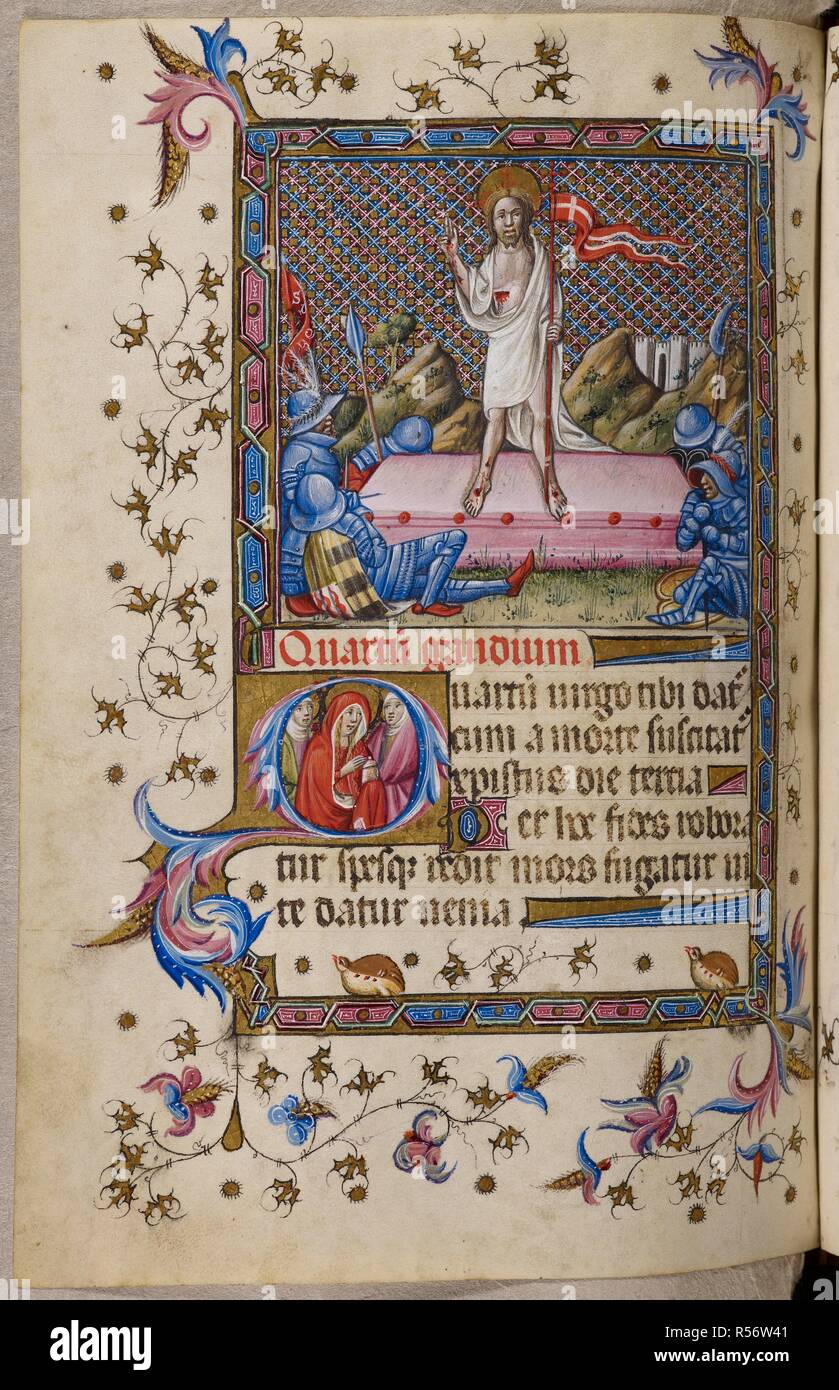 Quartū gaudium
Quartū virgo tibi dat᷑
cum a morte suscitat᷑
xpistus die tertia
Per hec fides robora
tur spesq; redit mors fugatur in
te datur venia
alamy
a
a
a
a
alamy
Image ID: R56W41
www.alamy.com